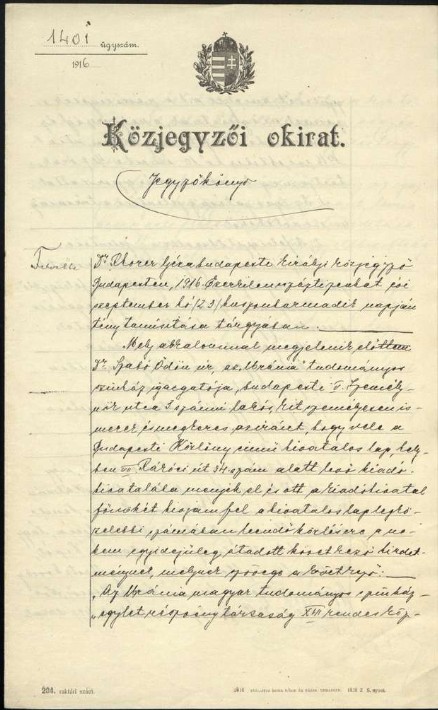 1401 ügyszám.
1916
Közjegyzői okirat.
Jegyzőkönyv
Felvette Dr. Géza budapesti királyi közjegyző
Budapesten, 1916 Ezerkilencszáztizenhat évi
szeptember hó /23/ huszonharmadik napján
ténytanúsítása tárgyában.
Mely alkalommal megjelenik előttem
Dr. Szabó Ödön úr, az "Uránia" tudományos
színház igazgatója, budapesti
utca 3 számú lakós, kit személyesen is-
merek és megkeres aziránt, hogy vele a
Budapesti Közlöny című hivatalos lap
ben Rákóczi út 54 szám alatt levő kiadó-
hivatalába menjek el és ott a kiadóhivatal
főnökét hívjam fel a hivatalos lap legkö-
zelebbi számában leendő közlésére a ne-
kem egyidejűleg átadott következő hirdet-
ménynek, melynek szövege a következő:
"Az Uránia magyar tudományos színház-
egylet részvénytársaság XVII rendes köz-
204. raktári szám.